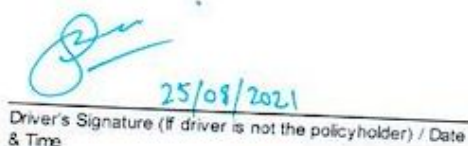 25/08/2021
Driver's Signature (If driver is not the policyholder) / Date
& Time